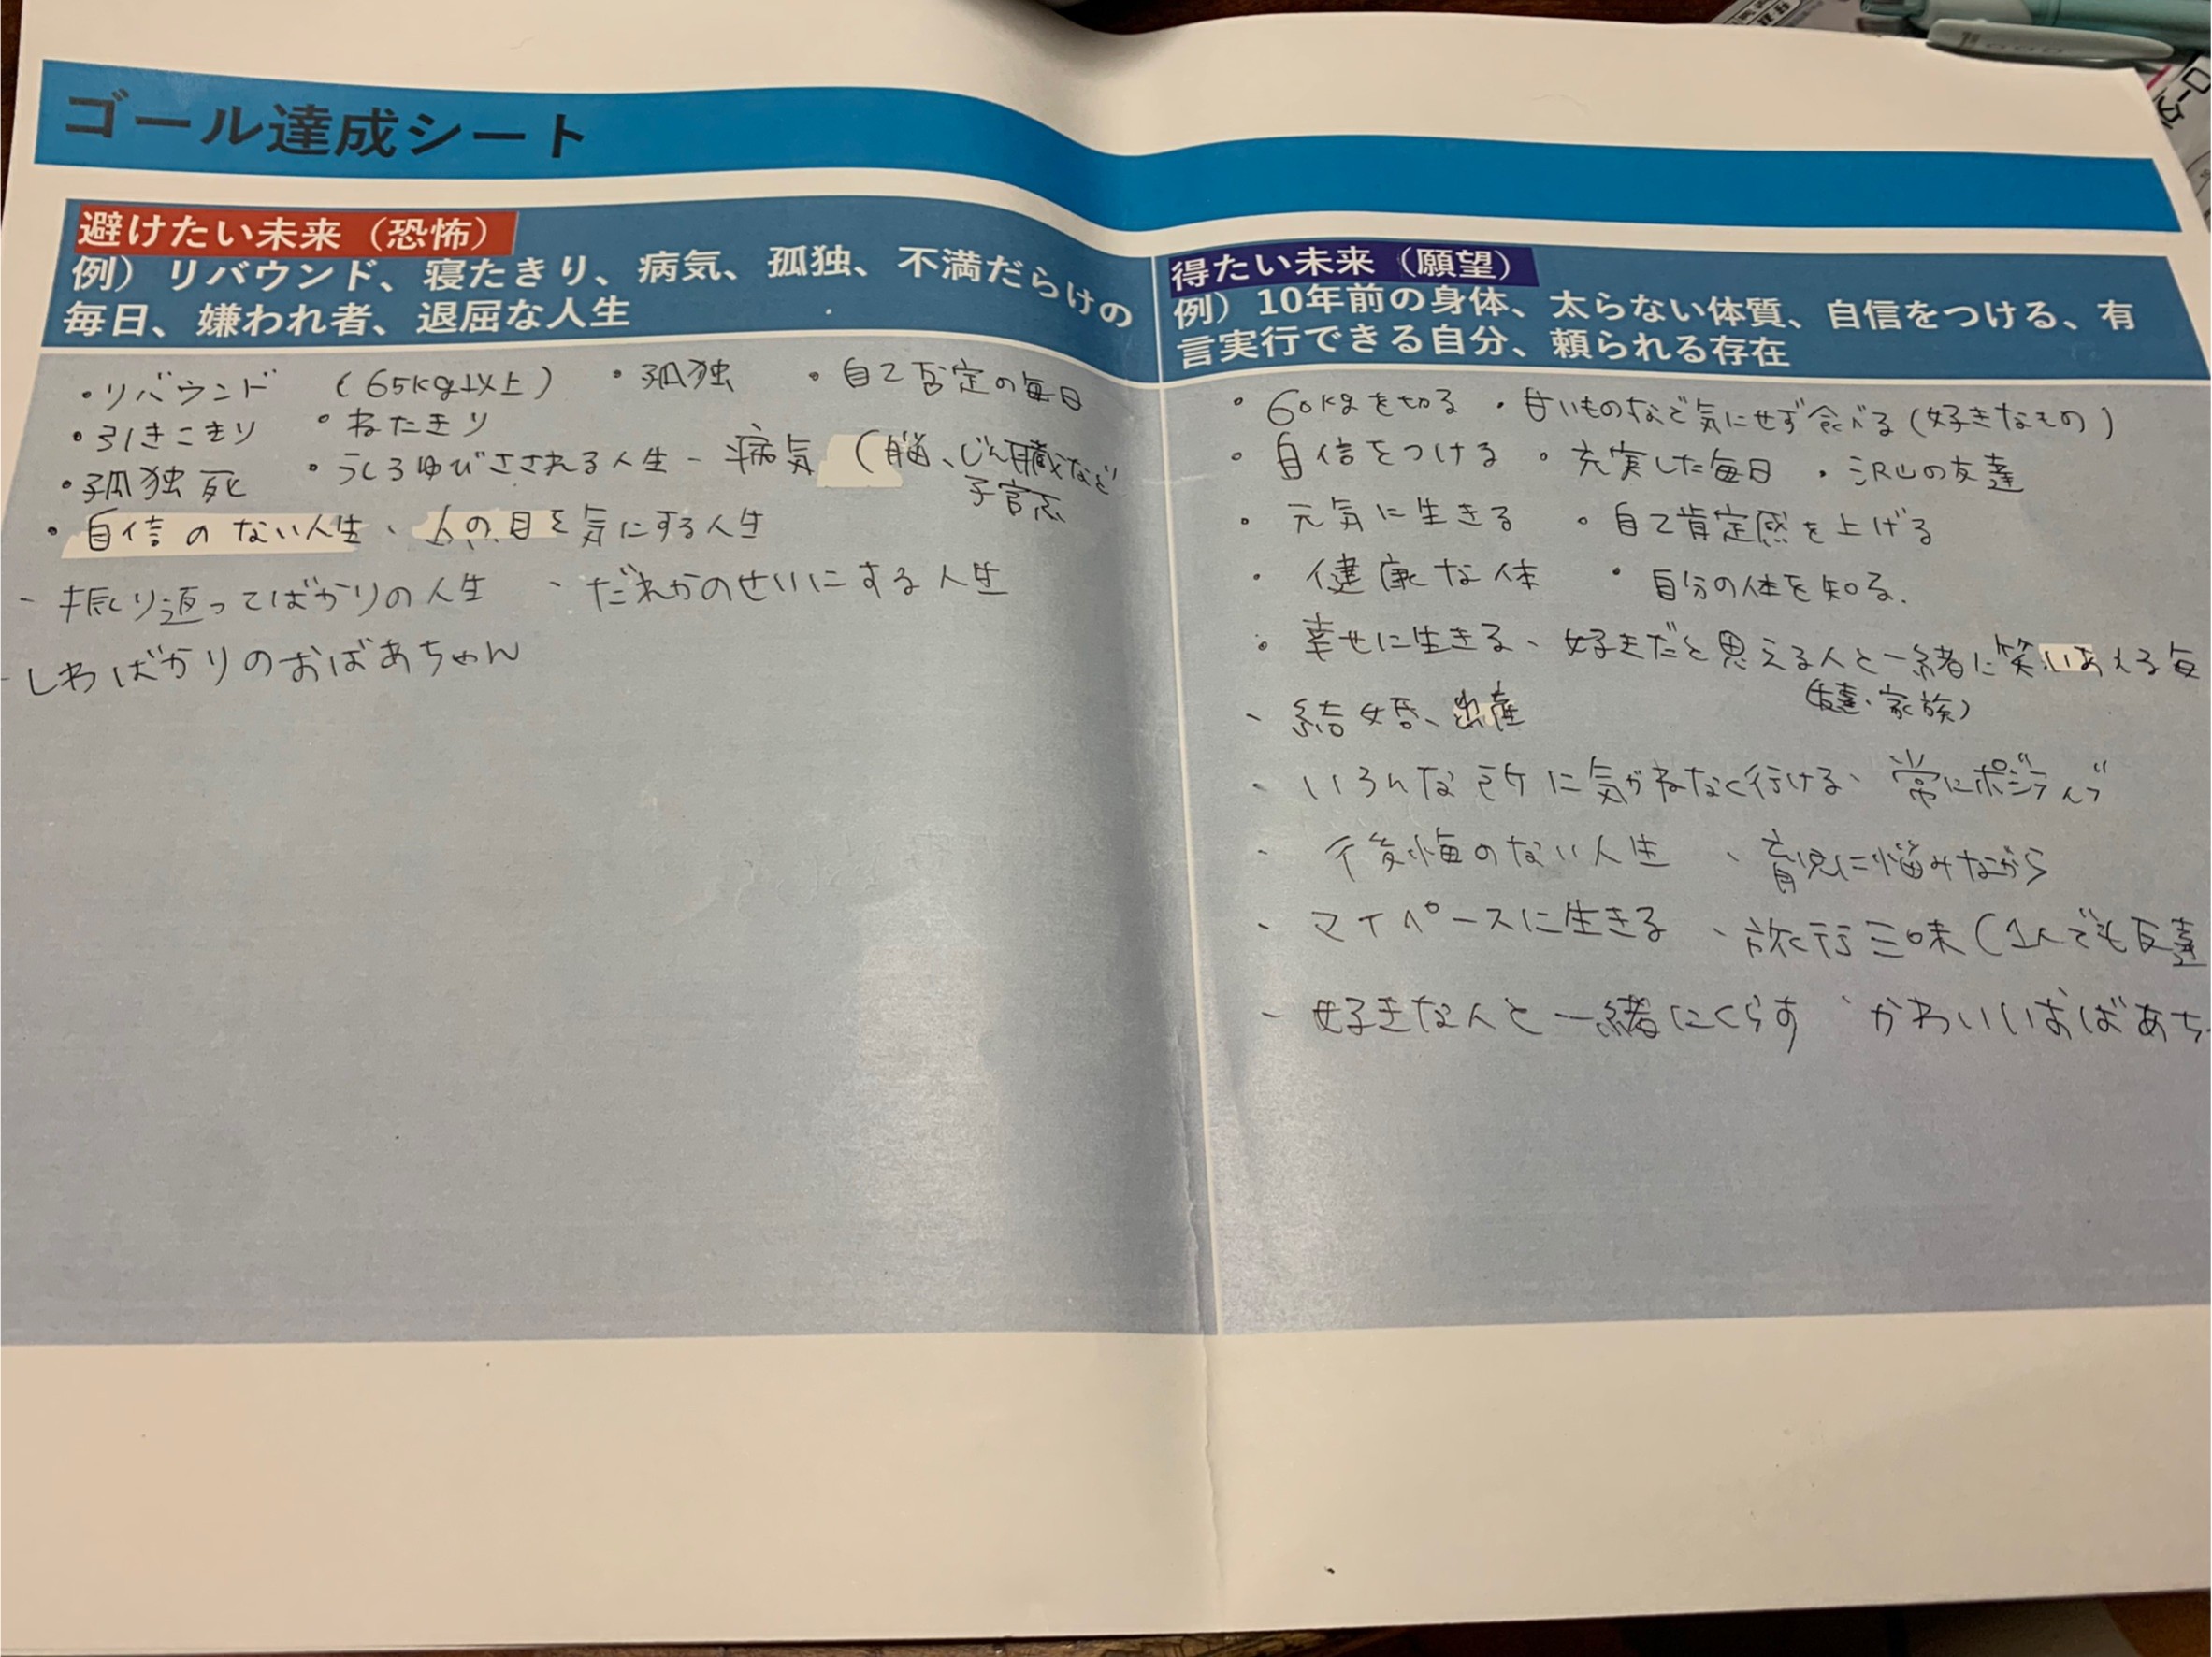 ゴール達成シート
避けたい未来（恐怖）
例）リバウンド、寝たきり、病気、孤独、不満だらけの
毎日、嫌われ者、退屈な人生
・リバウンド （65kg以上） ・孤独 ・自己否定の毎日
・引きこもり ・ねたきり
・孤独死 ・うしろゆびさされる人生 - 病気（脳、じん臓など
子宮
・自信のない人生、人の目を気にする人生
- 振り返ってばかりの人生 、だれかのせいにする人生
- しわばかりのおばあちゃん
得たい未来（願望）
例）10年前の身体、太らない体質、自信をつける、有
言実行できる自分、頼られる存在
・60kgを切る ・甘いものなど気にせず食べる（好きなもの）
・自信をつける ・充実した毎日 ・沢山の友達
・元気に生きる ・自己肯定感を上げる
・健康な体 ・自分の体を知る.
・幸せに生きる、好きだと思える人と一緒に笑いあえる毎
（友達・家族）
、結婚、出産
- いろんな所に気がねなく行ける、常にポジティブ
- 後悔のない人生 、育児に悩みながら
- マイペースに生きる 、旅行三味（1人でも友達
- 好きな人と一緒にくらす 、かわいいおばあち